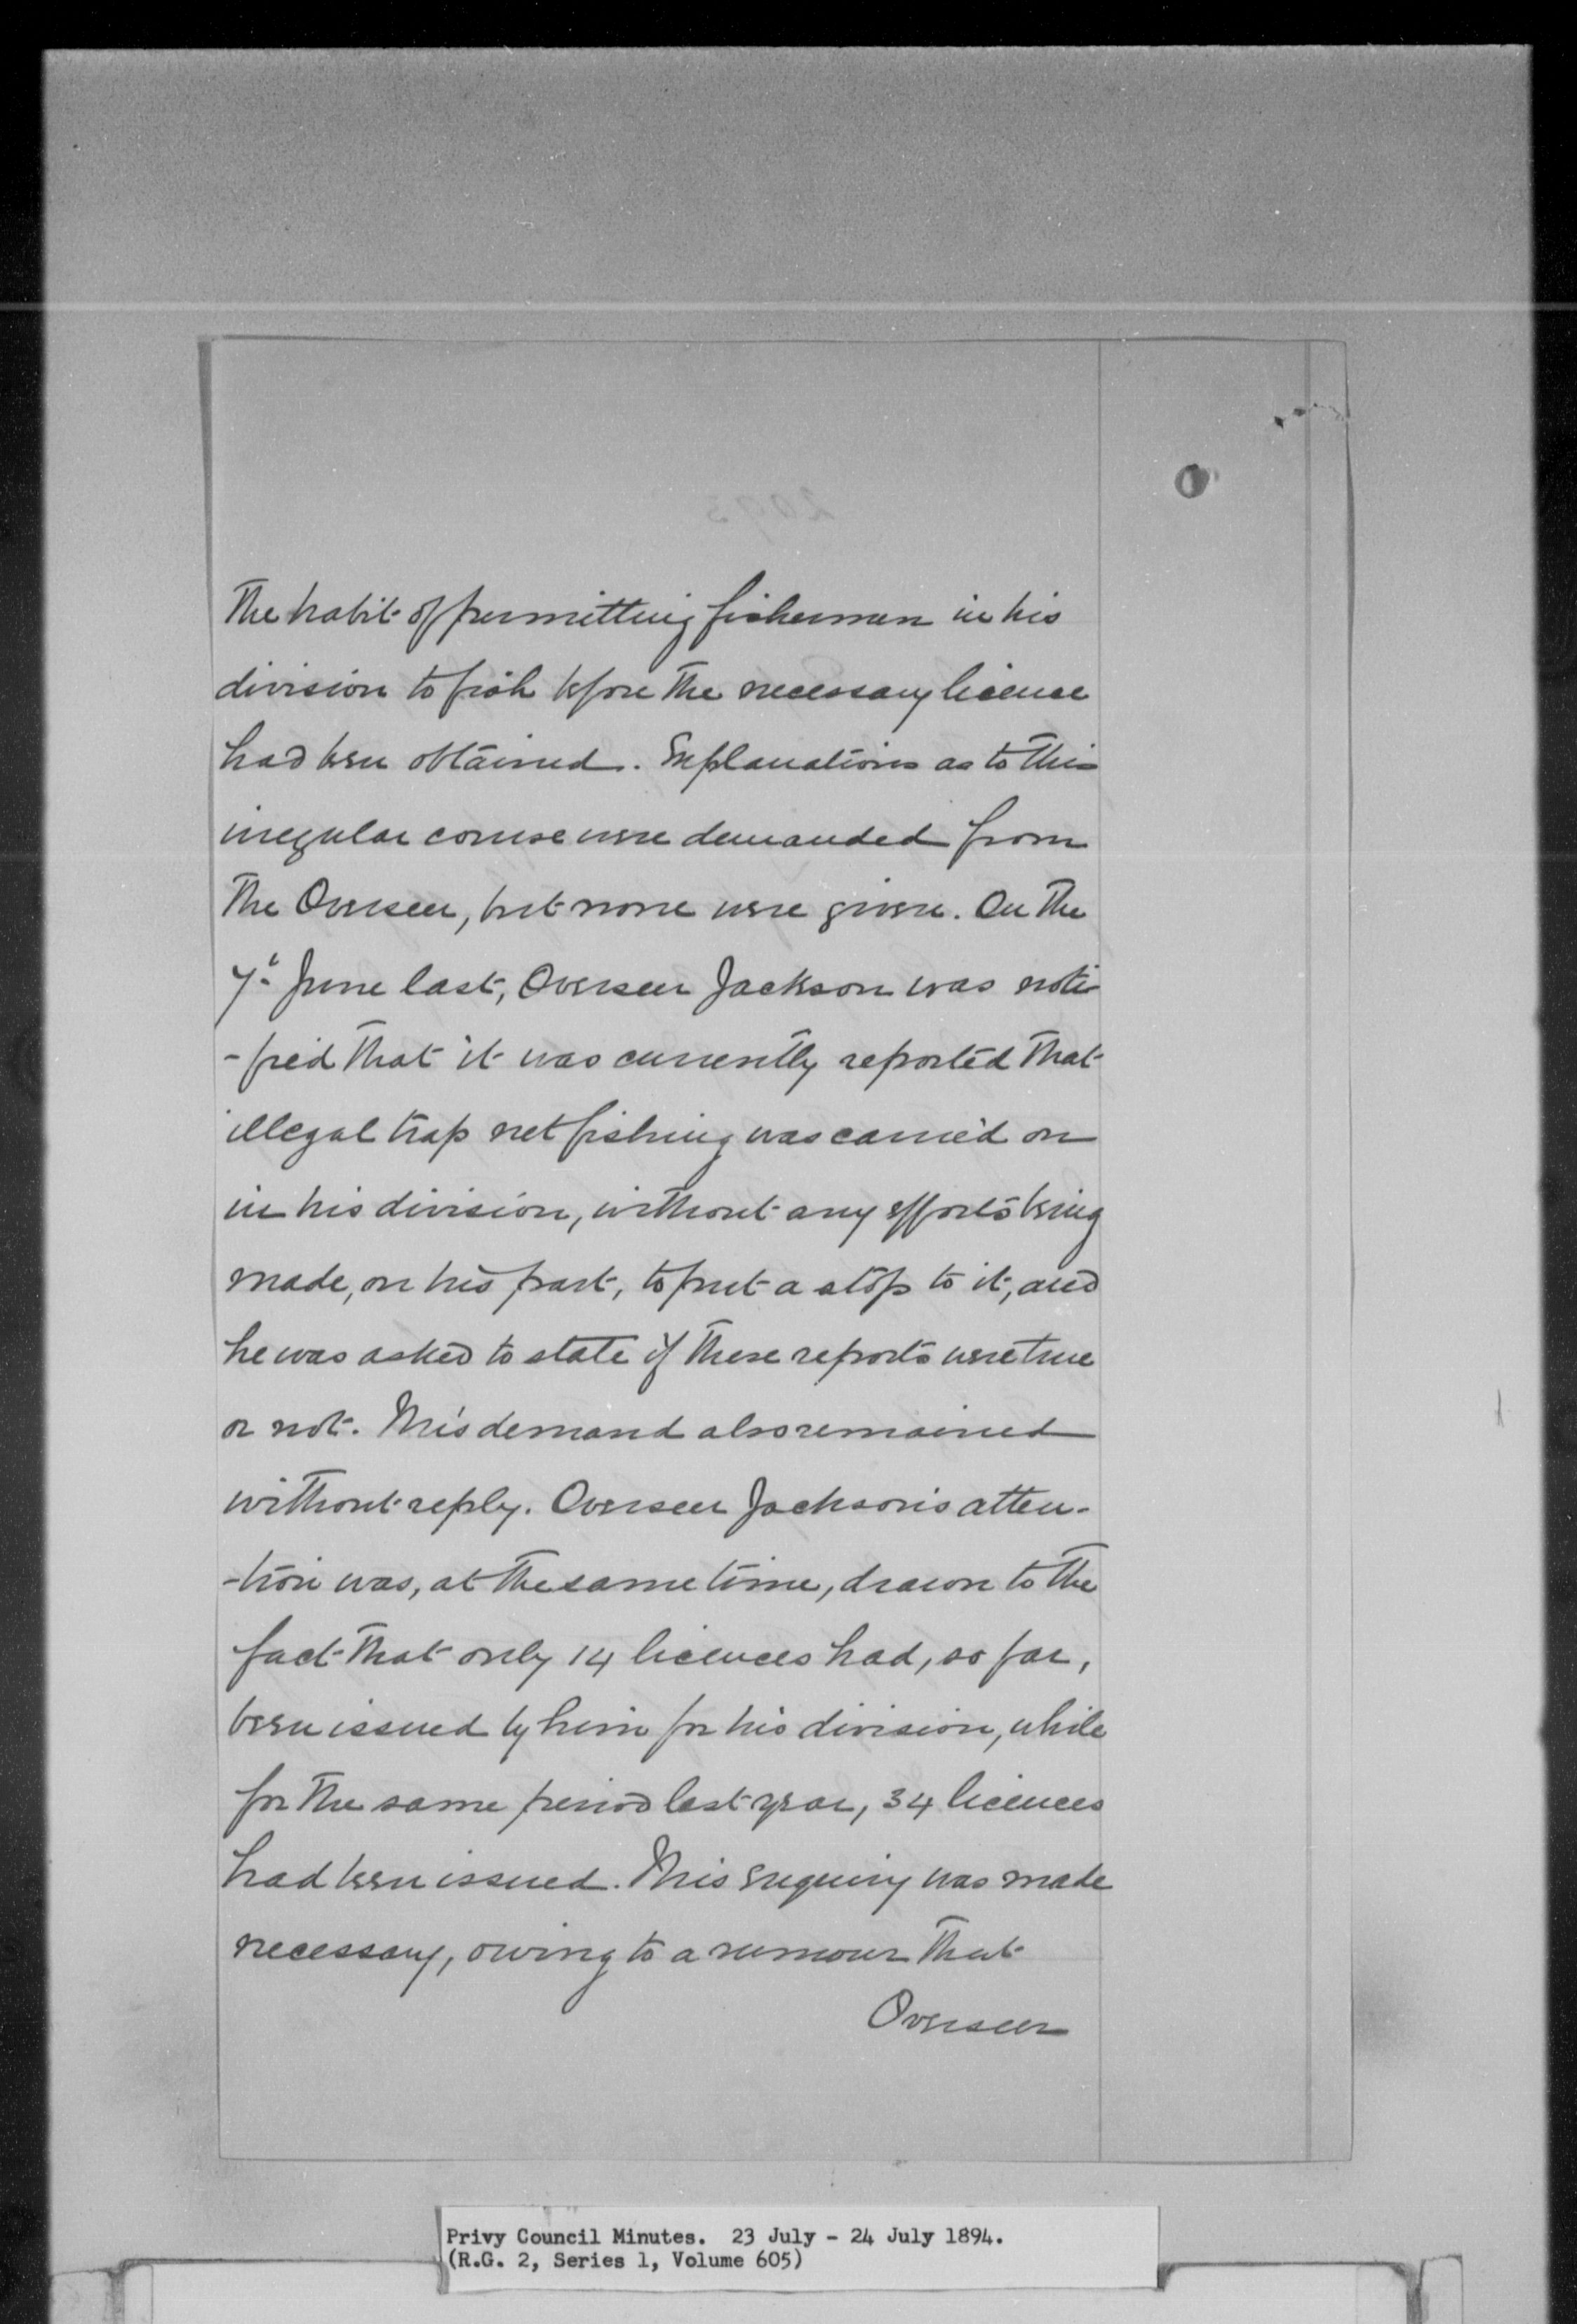 the habit of permitting fishermen in his
division to fish before the necessary licence
had been obtained. Explanations as to this
irregular course were demanded from
the Overseer, but none were given. On the
7th June last, Overseer Jackson was noti-
-fied that it was currently reported that
illegal trap net fishing was carried on
in his division, without any efforts being
made, on his part, to put a stop to it, and
he was asked to state if these reports were true
or not. This demand also remained
without reply. Overseer Jackson's atten-
-tion was, at the same time, drawn to the
fact that only 14 licences had, so far,
been issued by him for his division, while
for the same period last year, 34 licences
had been issued. This enquiry was made
necessary, owing to a rumour that
Overseer
Privy Council Minutes. 23 July - 24 July 1894.
(R.G. 2, Series 1, Volume 605)